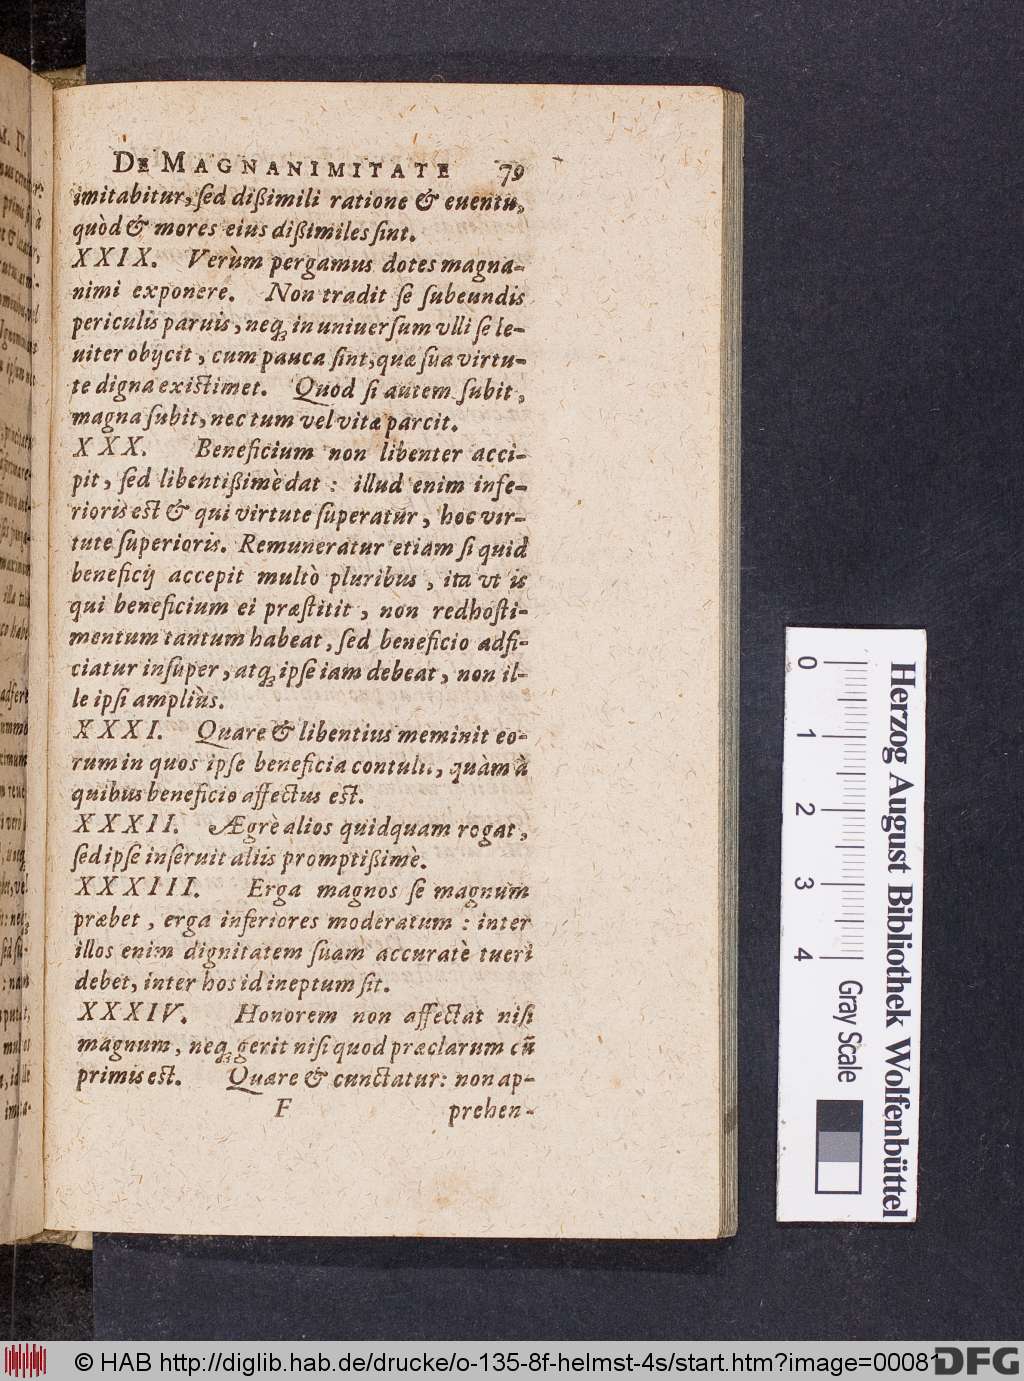 DE MAGNANIMITATE 79
imitabitur, sed dißimili ratione & euentu,
quòd & mores eius dißimiles sint.
XXIX. Verùm pergamus dotes magna-
nimi exponere. Non tradit se subeundis
periculis paruis, neq; in uniuersum vlli se le-
uiter obijcit, cum pauca sint, quæ sua virtu-
te digna existimet. Quod si autem subit,
magna subit, nec tum vel vitæ parcit.
XXX. Beneficium non libenter acci-
pit, sed libentißimè dat: illud enim infe-
rioris est & qui virtute superatur, hoc vir-
tute superioris. Remuneratur etiam si quid
beneficij accepit multò pluribus, ita vt is
qui beneficium ei præstitit, non redhosti-
mentum tantum habeat, sed beneficio adfi-
ciatur insuper, atq; ipse iam debeat, non il-
le ipsi ampliùs.
XXXI. Quare & libentius meminit eo-
rum in quos ipse beneficia contulit, quàm à
quibus beneficio affectus est.
XXXII. Ægrè alios quidquam rogat,
sed ipse inseruit aliis promptißimè.
XXXIII. Erga magnos se magnum
præbet, erga inferiores moderatum: inter
illos enim dignitatem suam accuratè tueri
debet, inter hos id ineptum sit.
XXXIV. Honorem non affectat nisi
magnum, neq; gerit nisi quod præclarum cũ
primis est. Quare & cunctatur: non ap-
F prehen-
0 1 2 3 4
Herzog August Bibliothek Wolfenbüttel
Gray Scale
© HAB http://diglib.hab.de/drucke/o-135-8f-helmst-4s/start.htm?image=00081
DFG